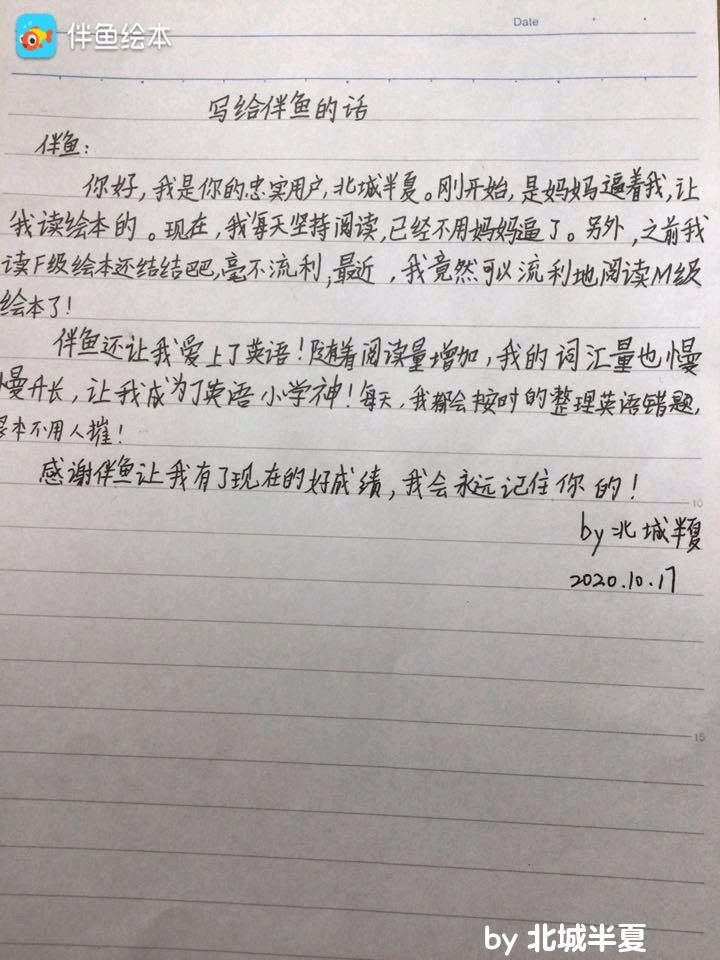 伴鱼绘本
Date
写给伴鱼的话
伴鱼：
你好，我是你的忠实用户，北城半夏。刚开始，是妈妈逼着我，让
我读绘本的。现在，我每天坚持阅读，已经不用妈妈逼了。另外，之前我
读F级绘本还结结吧，毫不流利，最近，我竟然可以流利地阅读M级
绘本了！
伴鱼还让我爱上了英语！随着阅读量增加，我的词汇量也慢
慢升长，让我成为了英语小学神！每天，我都会按时的整理英语错题，
根本不用人摧！
感谢伴鱼让我有了现在的好成绩，我会永远记住你的！
10
by 北城半夏
2020.10.17
15
by 北城半夏